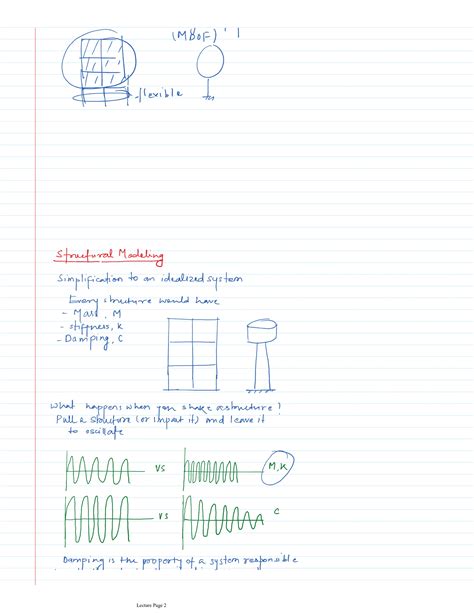 (MDOF)
flexible
Structural Modeling
Simplification to an idealized system
Every structure would have
- Mass, M
- stiffness, K
- Damping, C
What happens when you shake a structure?
Pull a structure (or impart it) and leave it
to oscillate
vs
M, K
vs
C
Damping is the property of a system responsible
Lecture Page 2